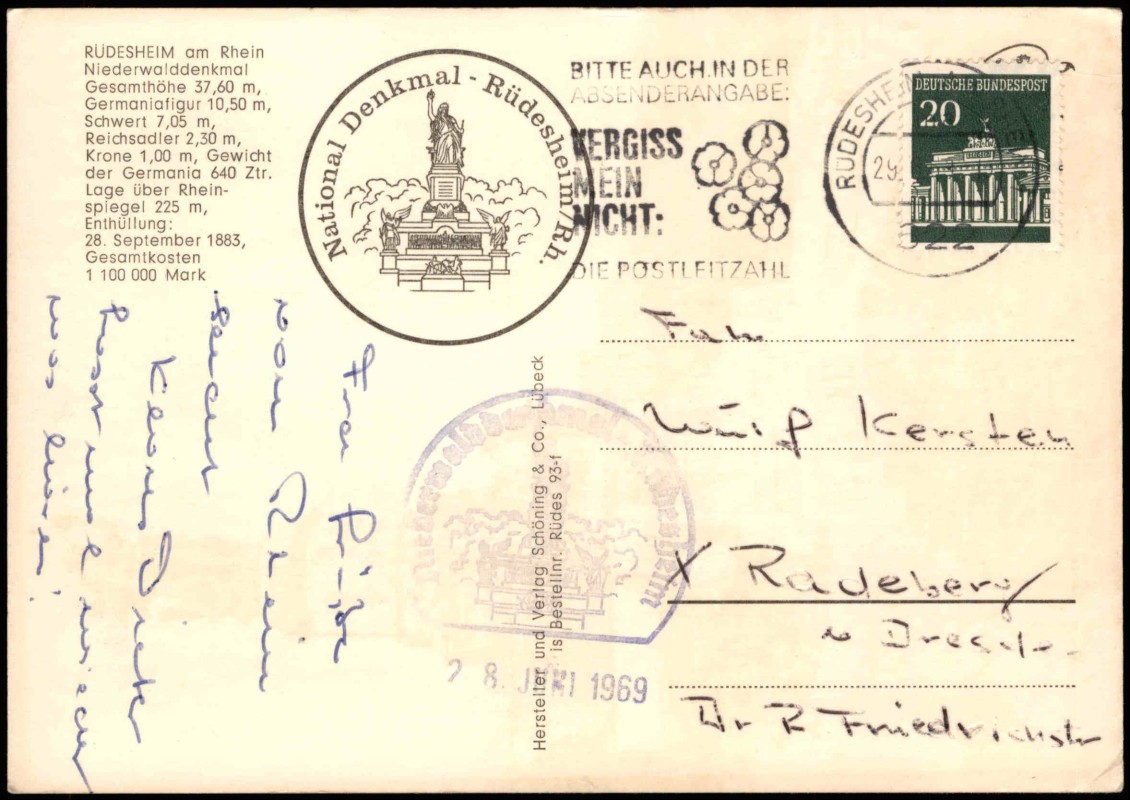 RÜDESHEIM am Rhein
Niederwalddenkmal
Gesamthöhe 37,60 m,
Germaniafigur 10,50 m,
Schwert 7,05 m,
Reichsadler 2,30 m,
Krone 1,00 m, Gewicht
der Germania 640 Ztr.
Lage über Rhein-
spiegel 225 m,
Enthüllung:
28. September 1883,
Gesamtkosten
1 100 000 Mark
National Denkmal - Rüdesheim/Rh.
BITTE AUCH IN DER
ABSENDERANGABE:
VERGISS
MEIN
NICHT:
DIE POSTLEITZAHL
RÜDESHEIM
29.
622
DEUTSCHE BUNDESPOST
20
Frau Grüße
vom Rhein
sendet
Klaus Dieter
Lasst mal wieder
was hören!
Hersteller und Verlag Schöning & Co., Lübeck
is Bestellnr. Rüdes 93-f
Niederwalddenkmal Rüdesheim
28. JUNI 1969
Fam
Kersten
X Radeberg
Friedrichstr